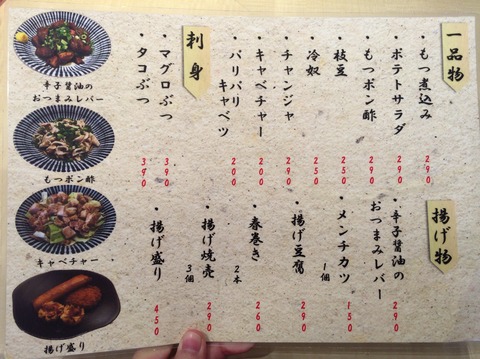 一品物
・もつ煮込み 290
・ポテトサラダ 290
・もつポン酢 290
・枝豆 250
・冷奴 250
・チャンジャ 290
・キャベチャー 200
・パリパリ
キャベツ 200
刺身
・マグロぶつ 390
・タコぶつ 390
揚げ物
・辛子醤油の
おつまみレバー 290
・メンチカツ 1個 150
・揚げ豆腐 280
・春巻き 2本 260
・揚げ焼売 3個 290
・揚げ盛り 450
辛子醤油の
おつまみレバー
もつポン酢
キャベチャー
揚げ盛り